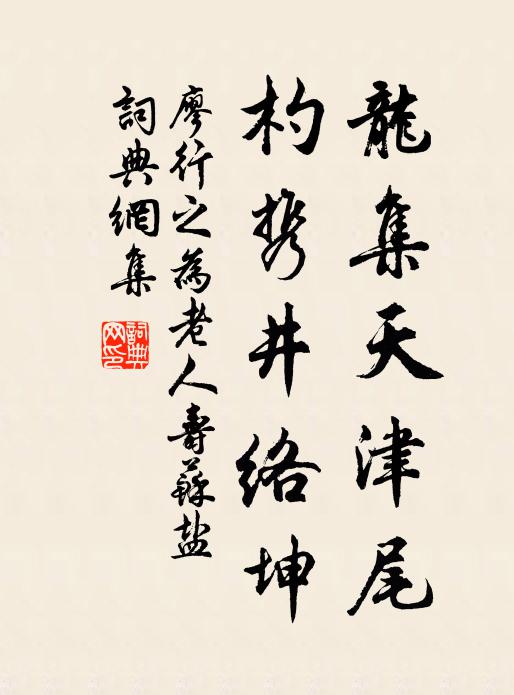 龍集天津尾
杓携井絡坤
廖行之為老人壽蘇盐
詞典網集
詞典网印